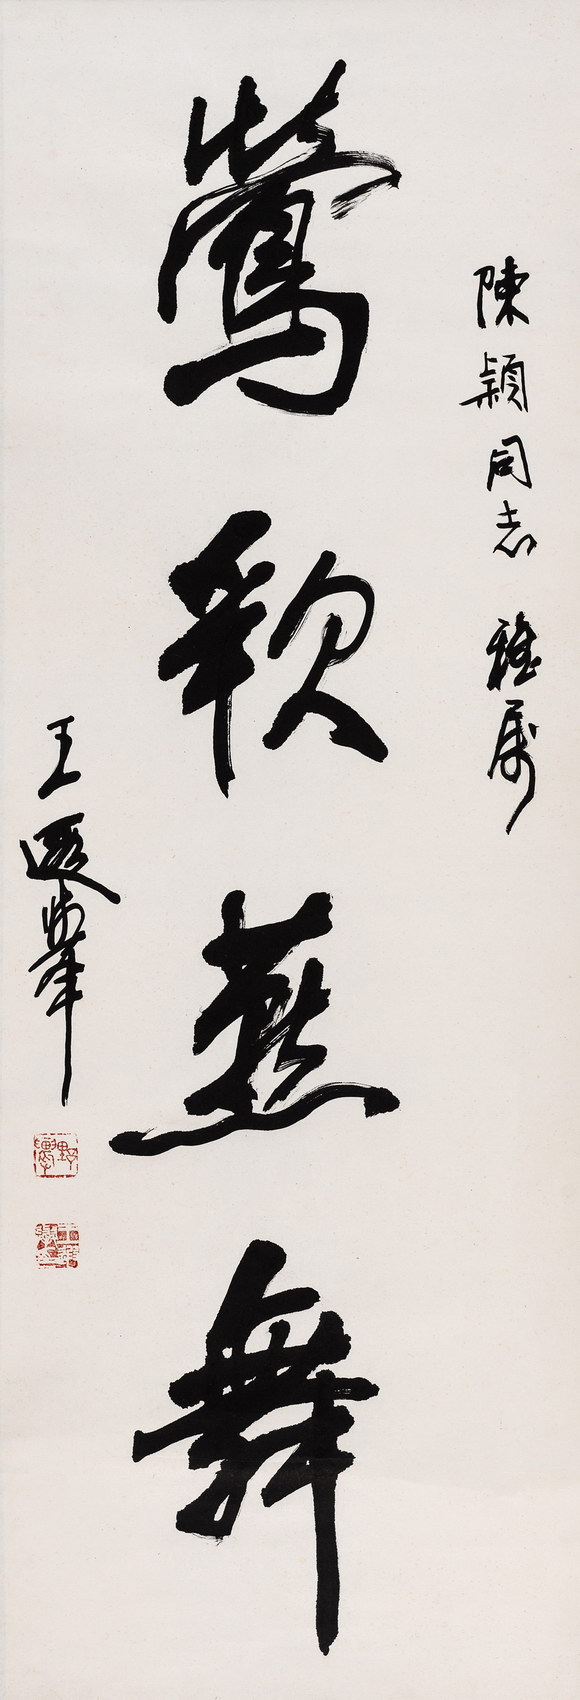 陳穎同志 雅屬
鶯歌燕舞
王遐舉